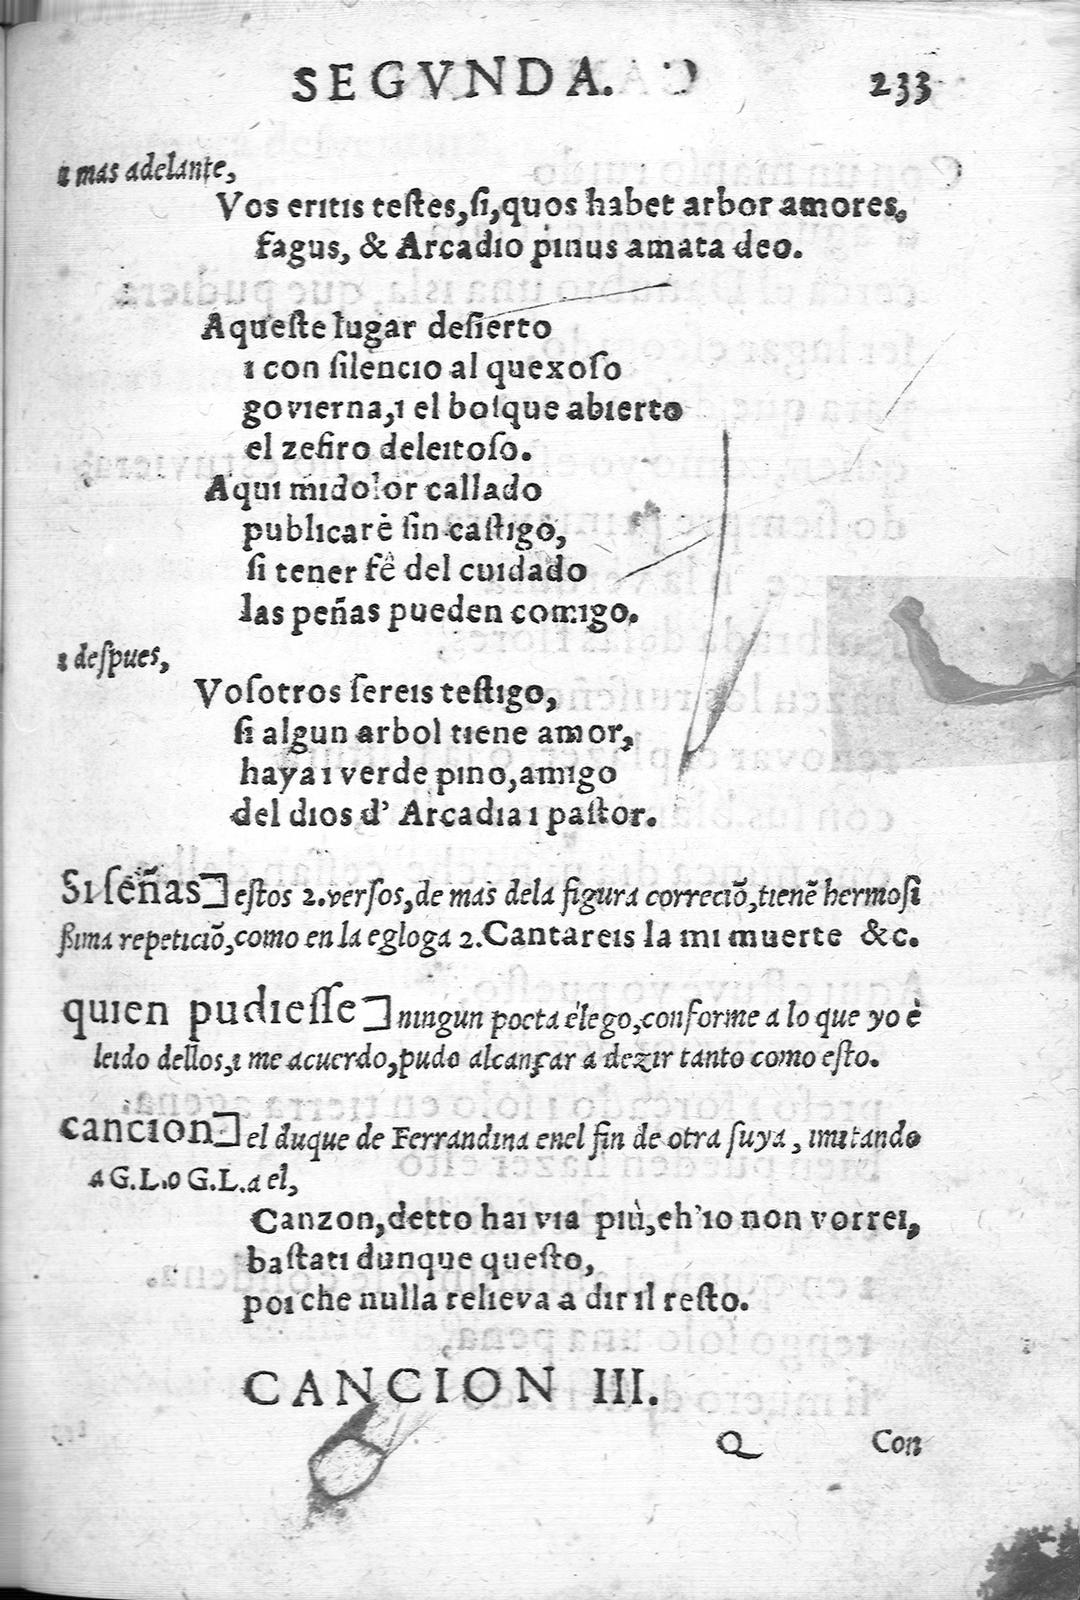 SEGVNDA. 233
ı mas adelante,
Vos eritis testes, si, quos habet arbor amores,
fagus, & Arcadio pinus amata deo.
Aqueste lugar desierto
ı con silencıo al quexoso
govıerna, ı el bosque abıerto
el zefiro deleıtoso.
Aquı mı dolor callado
publıcarè sin castıgo,
si tener fê del cuıdado
las peñas pueden comıgo.
ı despues,
Vosotros sereıs testıgo,
si algun arbol tıene amor,
haya ı verde pıno, amıgo
del dıos d' Arcadıa ı pastor.
Sı señas] estos 2. versos, de mas dela figura correciõ, tienẽ hermosi
ßıma repeticiõ, como en la egloga 2. Cantareıs la mı muerte &c.
quıen pudıesse] nıngun poeta élego, conforme a lo que yo è
leıdo dellos, ı me acuerdo, pudo alcançar a dezır tanto como esto.
cancıon] el duque de Ferrandına enel fin de otra suya, ımıtando
a G. L. o G. L. a el,
Canzon, detto haı vıa pıù, ch'ıo non vorreı,
bastatı dunque questo,
poı che nulla relıeva a dır ıl resto.
CANCION III.
Q Con